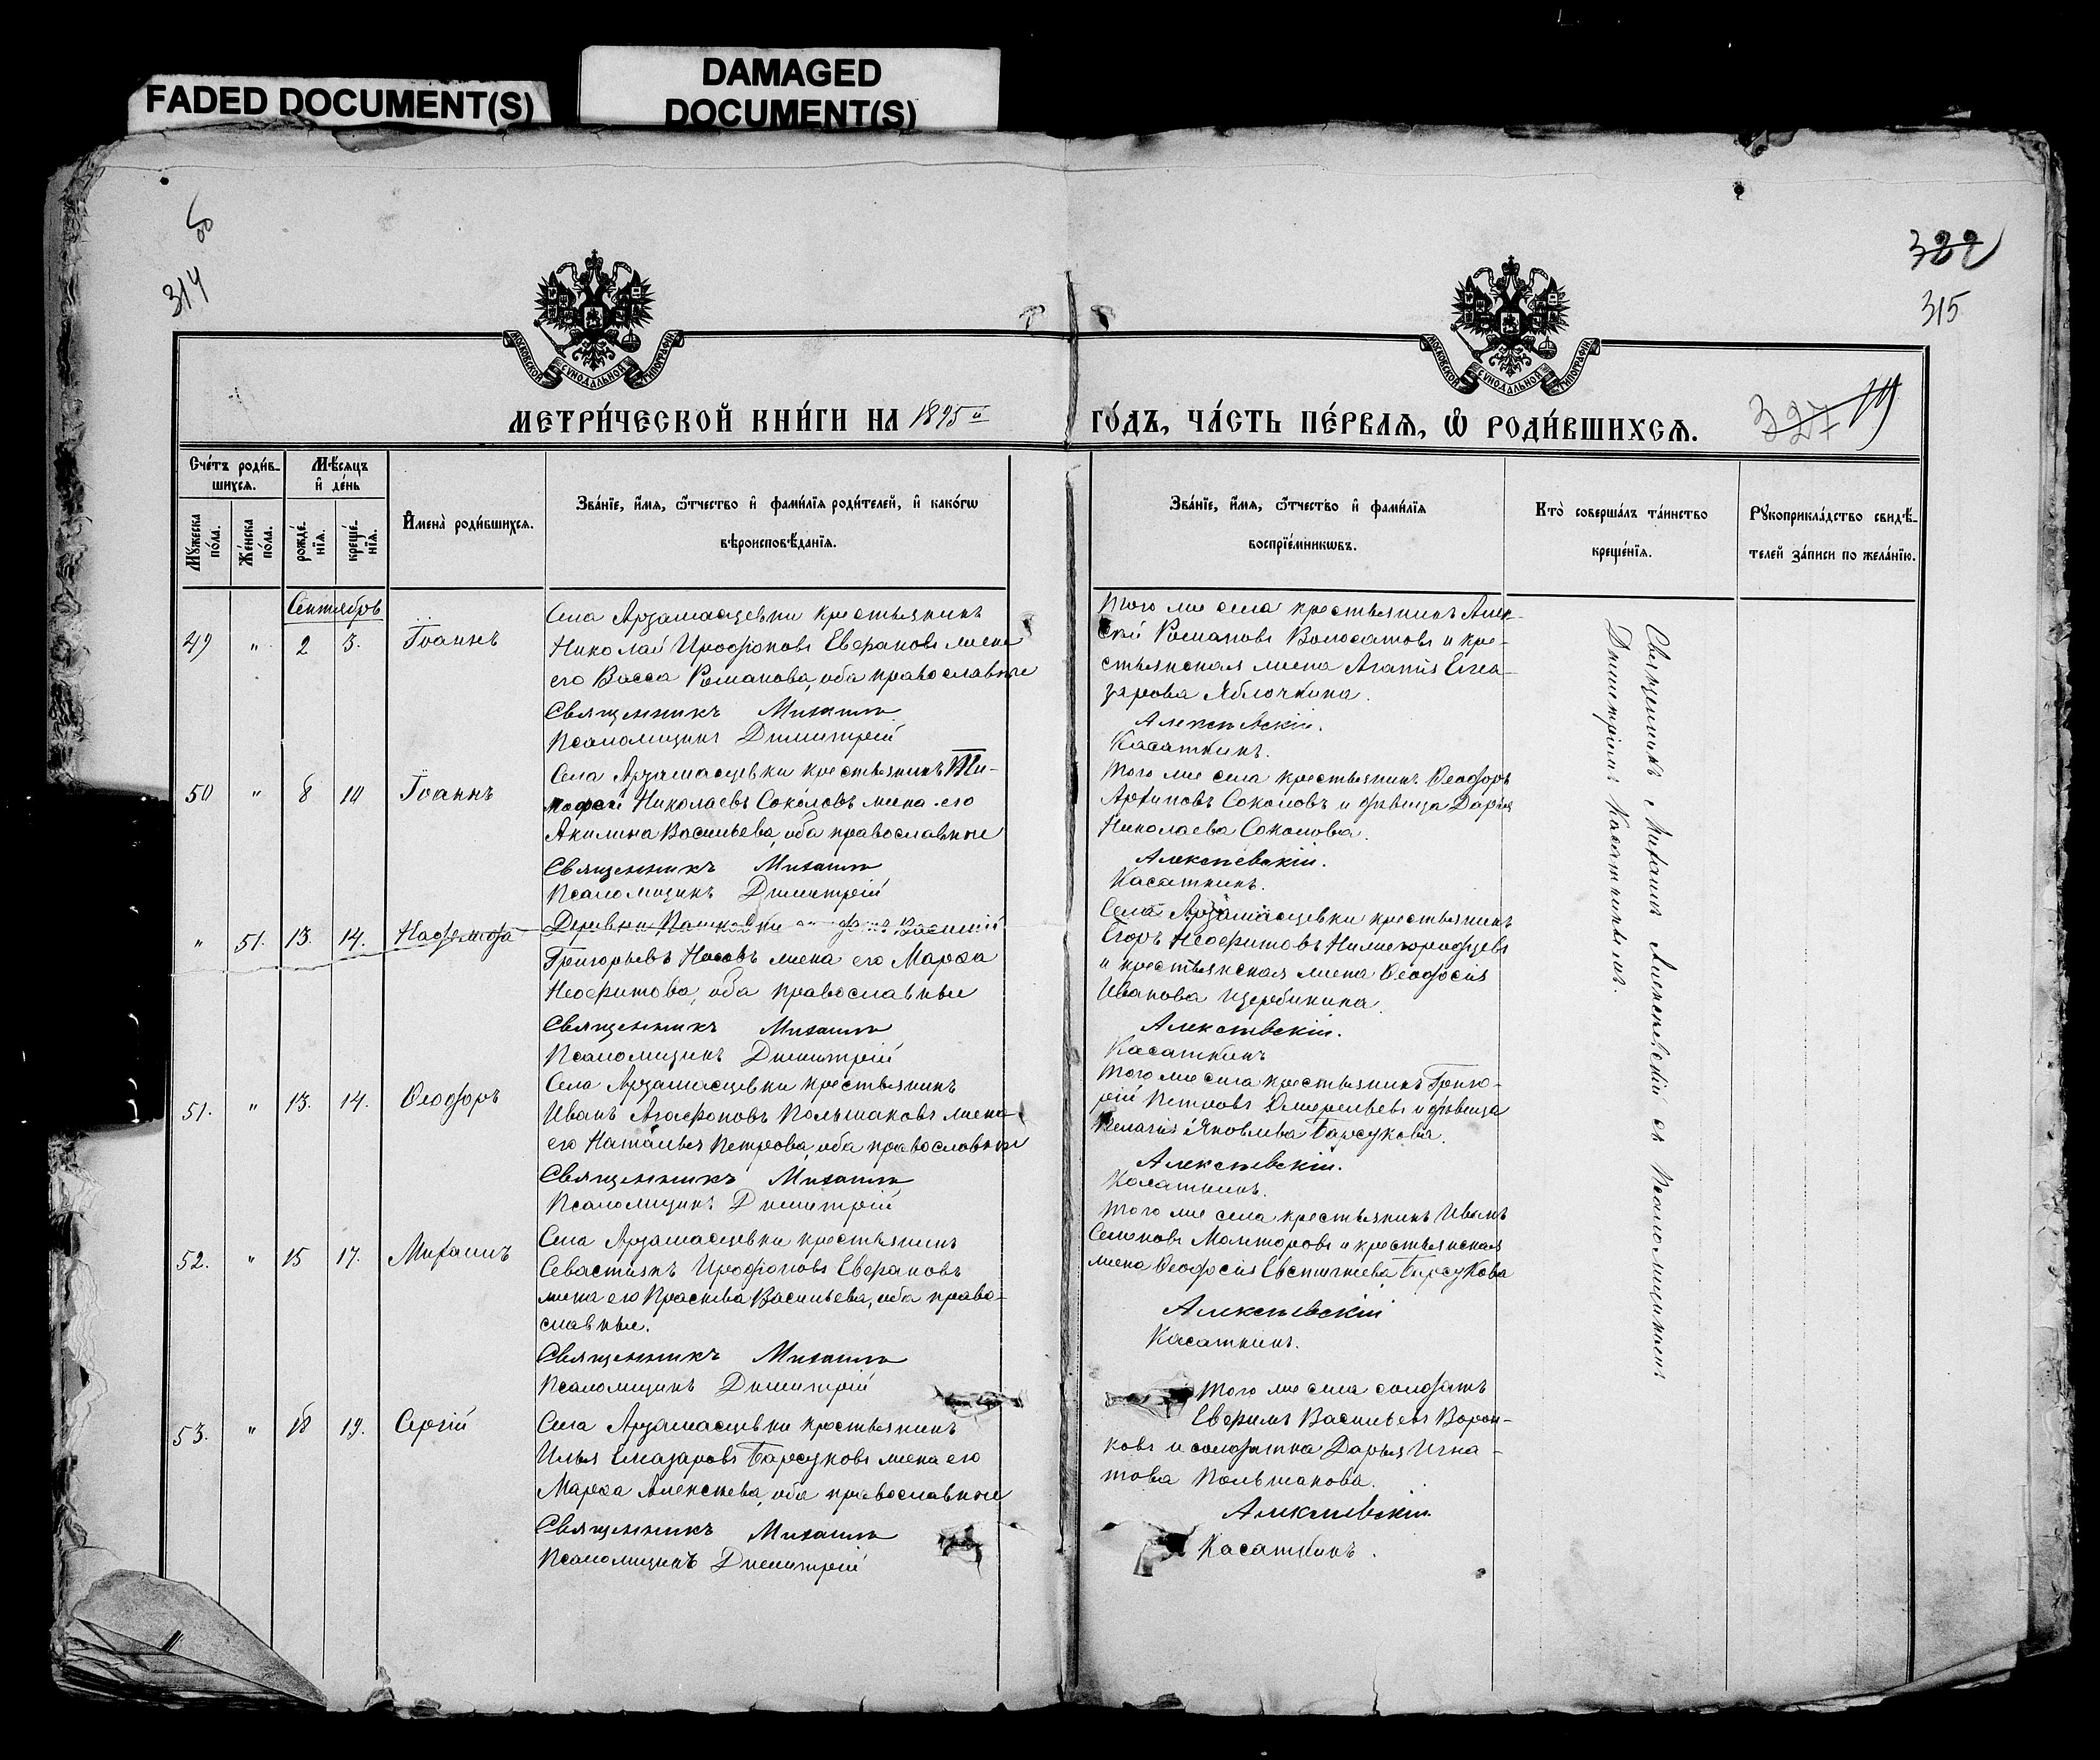 FADED DOCUMENT(S)
DAMAGED
DOCUMENT(S)
об
314
322
315
МОСКОВСКОЙ СУНОДАЛЬНОЙ ТИПОГРАФІИ
МОСКОВСКОЙ СУНОДАЛЬНОЙ ТИПОГРАФІИ
МЕТРИ́ЧЕСКОЙ КНИ́ГИ НА 1895 й
ГО́ДЪ, ЧА́СТЬ ПЕ́РВАѦ, Ѡ РОДИ́ВШИХСѦ.
327
Сче́тъ роди́в-
шихсѧ.
Мѣ́сѧцъ
и҆ де́нь
Мꙋжеска
по́ла.
Же́нска
по́ла.
рожде́-
нїѧ.
креще́-
нїѧ.
И҆мена̀ роди́вшихсѧ.
Зва́нїе, и҆́мѧ, ѻ҆́тчество и҆ фами́лїѧ роди́телей, и҆ како́гѡ
вѣроисповѣ́данїѧ.
Зва́нїе, и҆́мѧ, ѻ҆́тчество и҆ фами́лїѧ
воспрїе́мникѡвъ.
Кто̀ соверша́лъ та́инство
креще́нїѧ.
Рꙋкоприкла́дство свидѣ́-
телей за́писи по жела́нїю.
Сентябрь
49 " 2 3. Іоаннъ
Села Арзамасцевки крестьянинъ
Николай Иродіоновъ Еврановъ жена
его Васса Романова, оба православные
Священникъ Михаилъ
Псаломщикъ Димитрій
Того же села крестьянинъ Алек-
сѣй Романовъ Волосатовъ и кре-
стьянская жена Агапія Елеа-
зарова Яблочкина.
Алексѣевскій.
Касаткинъ.
50 " 8 10 Іоаннъ
Села Арзамасцевки крестьянинъ Ти-
мофей Николаевъ Соколовъ жена его
Акилина Васильева, оба православные
Священникъ Михаилъ
Псаломщикъ Димитрій
Того же села крестьянинъ Ѳеодоръ
Архиповъ Соколовъ и дѣвица Дарія
Николаева Соколова.
Алексѣевскій.
Касаткинъ.
" 51. 13. 14. Надежда
Деревни Пашковки Василій
Григорьевъ Носовъ жена его Марѳа
Неофитова, оба православные
Священникъ Михаилъ
Псаломщикъ Димитрій
Села Арзамасцевки крестьянинъ
Егоръ Неофитовъ Нижегородцевъ
и крестьянская жена Ѳеодосія
Иванова Щербинина.
Алексѣевскій.
Касаткинъ
51. " 13. 14. Ѳеодоръ
Села Арзамасцевки крестьянинъ
Иванъ Агафоновъ Польшаковъ жена
его Наталья Петрова, оба православные
Священникъ Михаилъ
Псаломщикъ Димитрій
Того же села крестьянинъ Григо-
рій Петровъ и дѣвица
Пелагія Яковлева Барсукова.
Алексѣевскій.
Касаткинъ.
52. " 15 17. Михаилъ
Села Арзамасцевки крестьянинъ
Севастіянъ Иродіоновъ Еврановъ
жена его Праскева Васильева, оба право-
славные.
Священникъ Михаилъ
Псаломщикъ Димитрій
Того же села крестьянинъ Иванъ
Семеновъ Манторовъ и крестьянская
жена Ѳеодосія Евстигнеева Барсукова
Алексѣевскій
Касаткинъ.
53. " 18 19. Сергій
Села Арзамасцевки крестьянинъ
Илья Елеазаровъ Барсуковъ жена его
Марѳа Алексѣева, оба православные
Священникъ Михаилъ
Псаломщикъ Димитрій
Того же села солдатъ
Евфимъ Васильевъ Ворон-
ковъ и солдатка Дарья Игна-
това Польшакова.
Алексѣевскій
Касаткинъ.
Священникъ Михаилъ Алексѣевскій съ Псаломщикомъ
Димитріемъ Касаткинымъ.